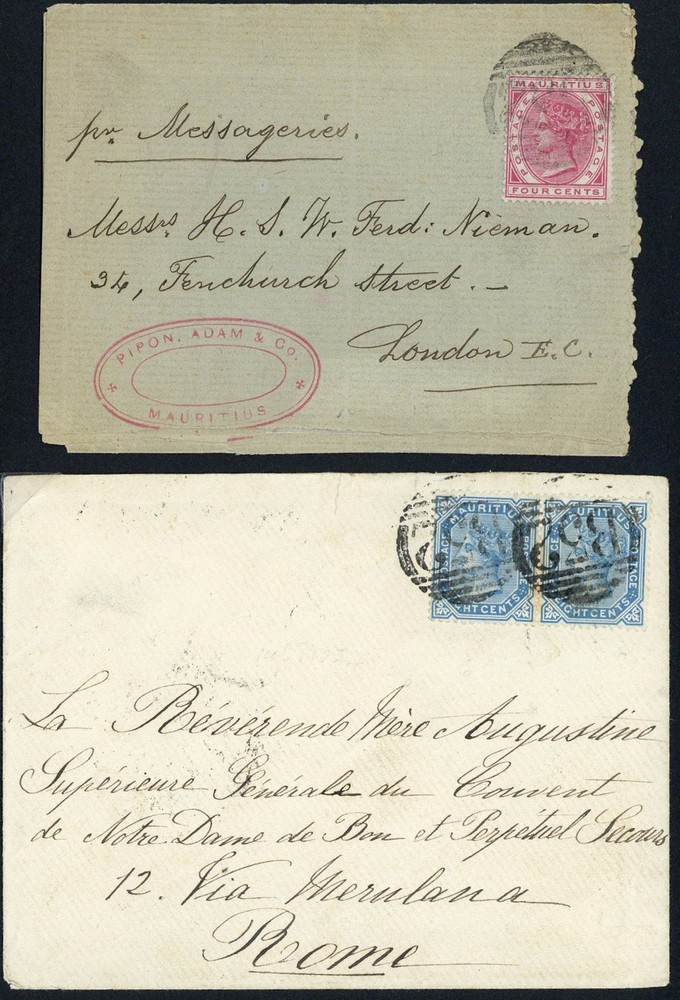 MAURITIUS
POSTAGE POSTAGE
FOUR CENTS
pr Messageries.
Messrs H. S. W. Ferd: Nieman.
34, Fenchurch Street. —
London E.C.
PIPON, ADAM & Co.
MAURITIUS
MAURITIUS
POSTAGE
CENTS
MAURITIUS
POSTAGE
EIGHT CENTS
La Révérende Mère Augustine
Supérieure Générale du Couvent
de Notre Dame de Bon et Perpétuel Secours
12. Via Merulana
Rome